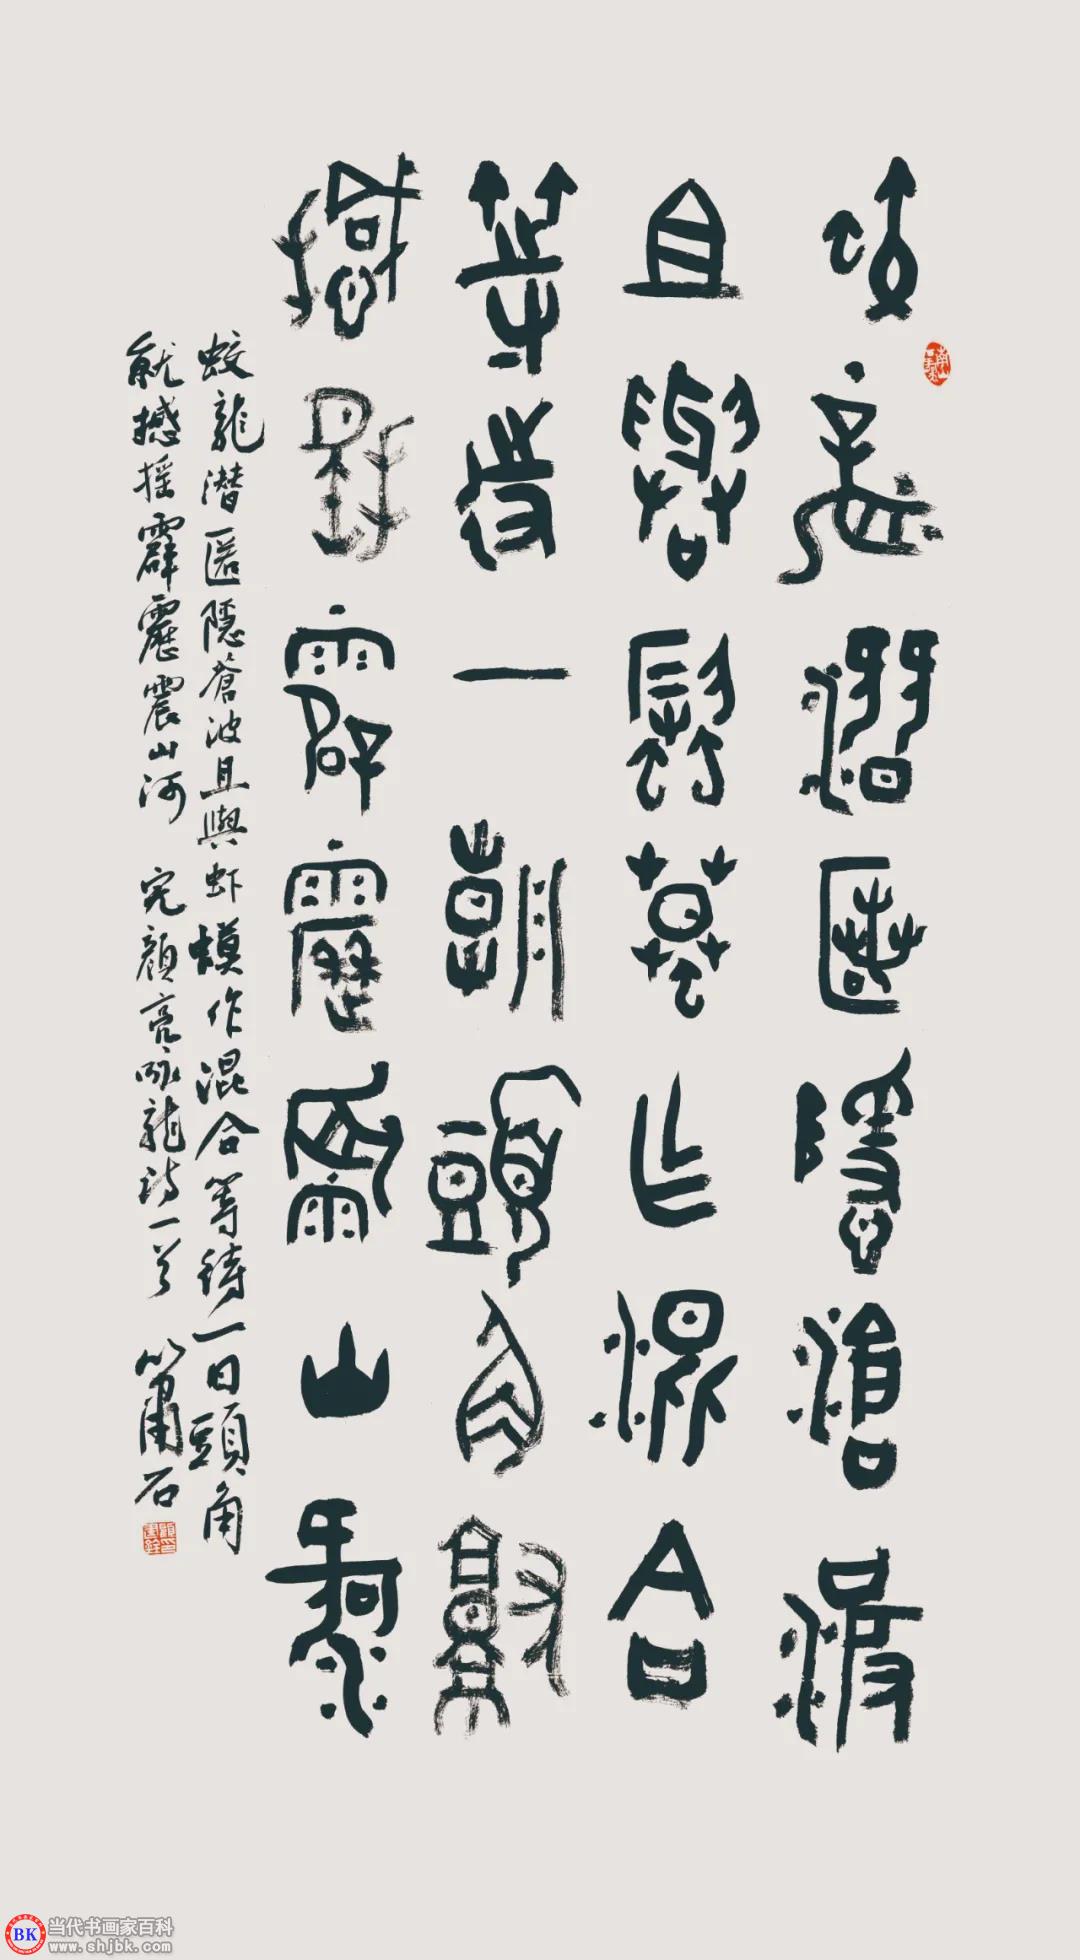 蛟龍潛匿隱滄波
且與蝦蟆作混合
等待一朝頭角就
撼搖霹靂震山河
蛟龍潜匿隱蒼波且與虾蟆作混合等待一日頭角
就撼摇霹靂震山河 完顔亮咏龍诗一首 簫石
BK
当代书画家百科
www.shjbk.com